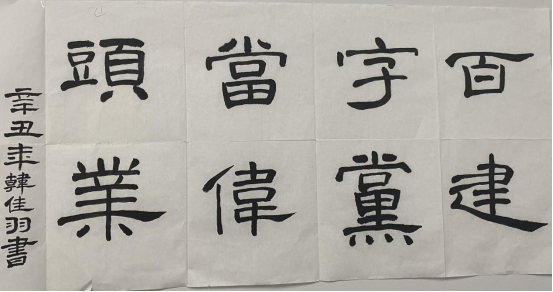 百字當頭
建黨偉業
辛丑年韓佳羽書